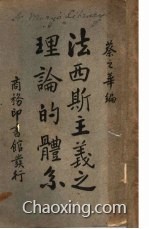 St. Mary's Library
蔡之華編
法西斯主義之
理論的體系
商務印書館發行
Chaoxing.com